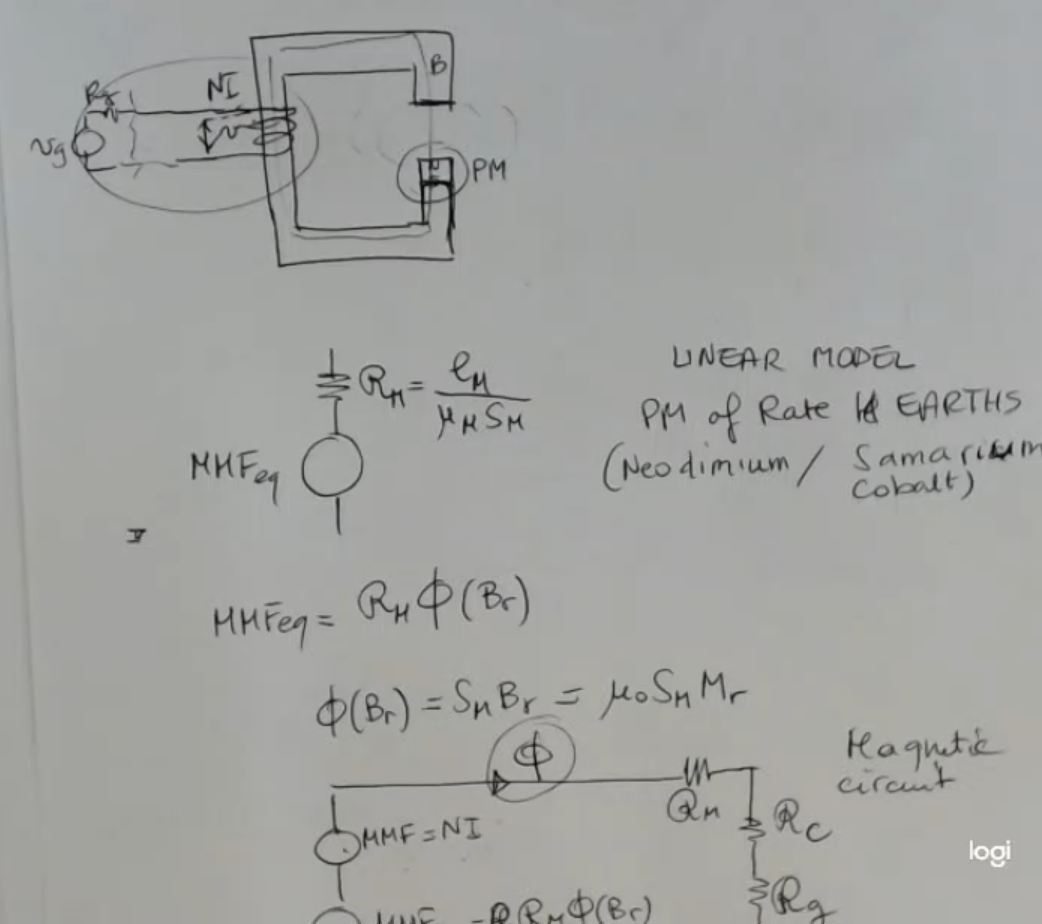 B
Rg NI
vg
v
PM
R_M = l_M / μ_M S_M
LINEAR MODEL
PM of Rate EARTHS
MMFeq
(Neodimium / Samarium
cobalt)
MMFeq = R_M ϕ(Br)
ϕ(Br) = S_M Br = μ₀ S_M Mr
ϕ
Magnetic
circuit
R_M
MMF = NI
R_C
logi
R_g
MMF = R_M ϕ(Br)